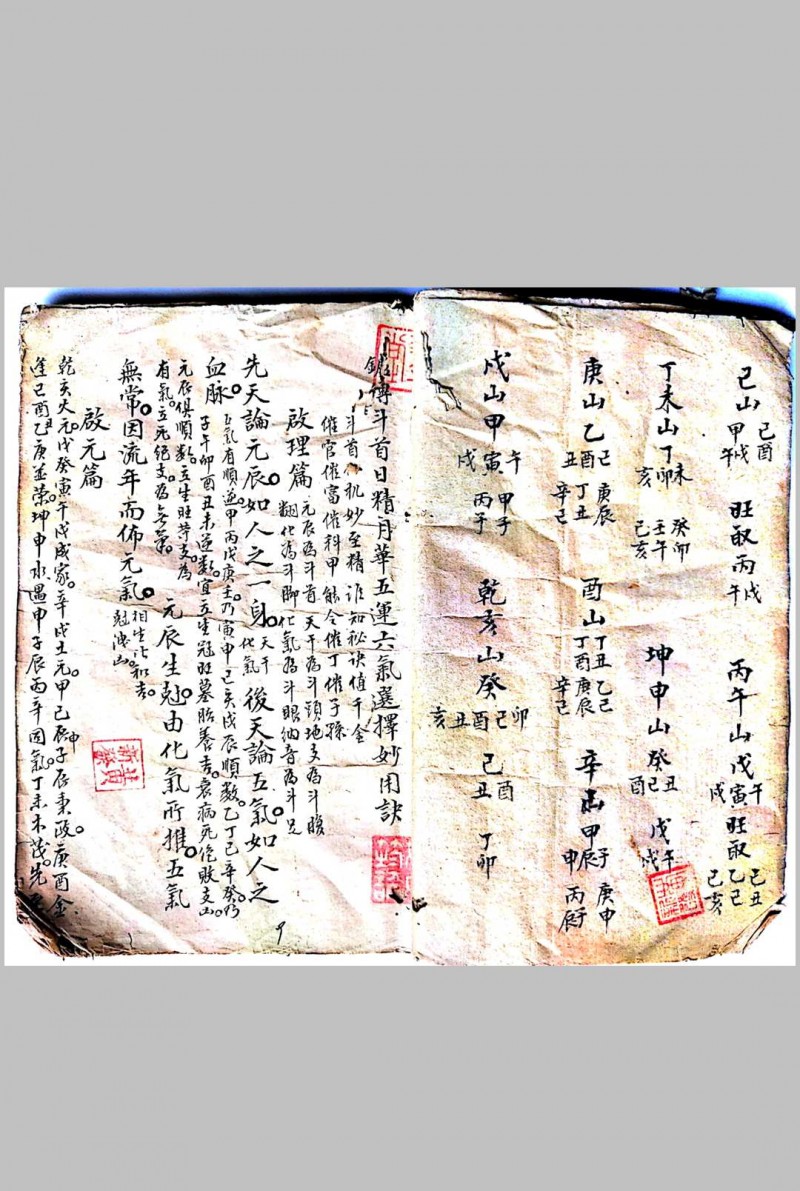 巳山甲 己酉 午戌 旺取丙 戌午 丙午山戊 午寅戌 旺取 乙己 己丑 己亥
丁未山丁 未卯亥 癸卯 壬午 己亥 坤申山癸 丑巳酉 戊午 戊午
庚山乙 己酉丑 庚辰 丁丑 辛巳 酉山 丁丑 乙巳 丁酉 庚辰 辛巳 辛山甲 子辰申 庚申 丙辰
戌山甲 午寅戌 甲子 丙子 乾亥山癸 卯己酉丑亥 己 酉丑 丁卯
傳斗首日精月華五運六氣選擇妙用訣
斗首 机妙至精 誰知祕訣值千金
催官催富催科甲 能令催丁催子孫
啟理篇 元辰為斗首 天干為斗頭 地支為斗腹
翻化為斗脚 化氣為斗眼 納音為斗足
先天論元辰。如人之一身。天干化氣 後天論五氣。如人之
血脉。五氣有順逆。甲丙戊庚壬。乃寅申己亥戌辰順数。乙丁己辛癸。乃
子午卯酉丑未逆数。宜立生冠旺墓胎養吉。衰病死絕敗支凶。
元辰俱順数。立生旺等支。為
有氣。立死絕支。為無氣。 元辰生尅。由化氣所推。五氣
無常。因流年而佈元氣。相生比和吉。尅洩凶。
啟元篇
乾亥大元。戊癸寅午戌成家。辛戌土元。甲己辰子申辰東政。庚酉金
逢己酉丑乙庚並荣。坤申水遇申子辰丙辛因氣。丁未木茂。先